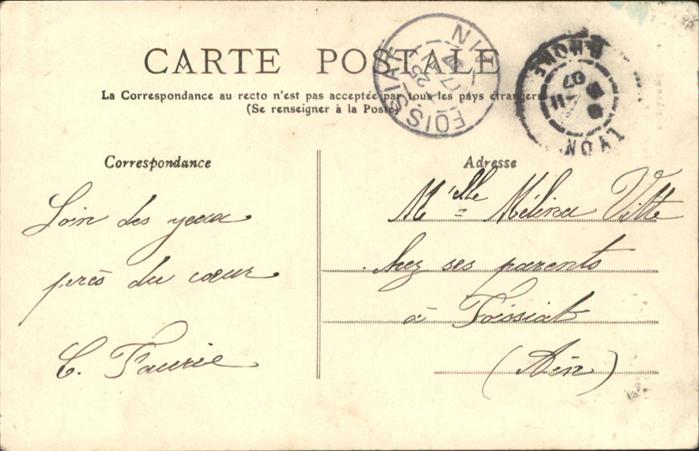 CARTE POSTALE
La Correspondance au recto n'est pas acceptée par tous les pays étrangers
(Se renseigner à la Poste)
FOISSIAT
AIN
25
07
LYON
RHONE
07
Correspondance
Loin des yeux
près du cœur
C. Faurie
Adresse
Mlle Mélina Vitte
chez ses parents
à Foissiat
(Ain)